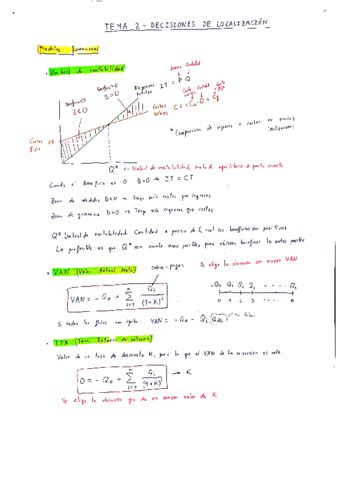 TEMA 2 - DECISIONES DE LOCALIZACIÓN
Modelos financieros
• Umbral de rentabilidad
Precio Cantidad
Ingresos totales IT = P·Q
Beneficio B>0
B<0
Costes totales CT = Cv·Q + CF
Costes fijos CF
* Comparación de ingresos y costes en varias
Q* = Umbral de rentabilidad, punto de equilibrio o punto muerto
Cuando el Beneficio es 0 B=0 → IT = CT
Zona de pérdidas B<0 → Tengo más costes que ingresos
Zona de ganancia B>0 → Tengo más ingresos que costes
Q* Umbral de rentabilidad. Cantidad a partir de la cual los beneficios son positivos
Lo preferible es que Q* sea cuanto antes posible para obtener beneficios lo antes posible
• VAN (Valor Actual Neto)
cobros - pagos
Se elige la decisión con mayor VAN
VAN = -Q₀ + Σ Qi/(1+K)^i
-Q₀ Q₁ Q₂ Q₃ - - - - Qn
0 1 2 3 - - - - n
Si todos los flujos son iguales
• TIR (Tasa Interna de retorno)
Valor de la tasa de descuento K, para la que el VAN de la inversión es nulo.
0 = -Q₀ + Σ Qi/(1+K)^i → K
Se elige la decisión que de un mayor valor de K